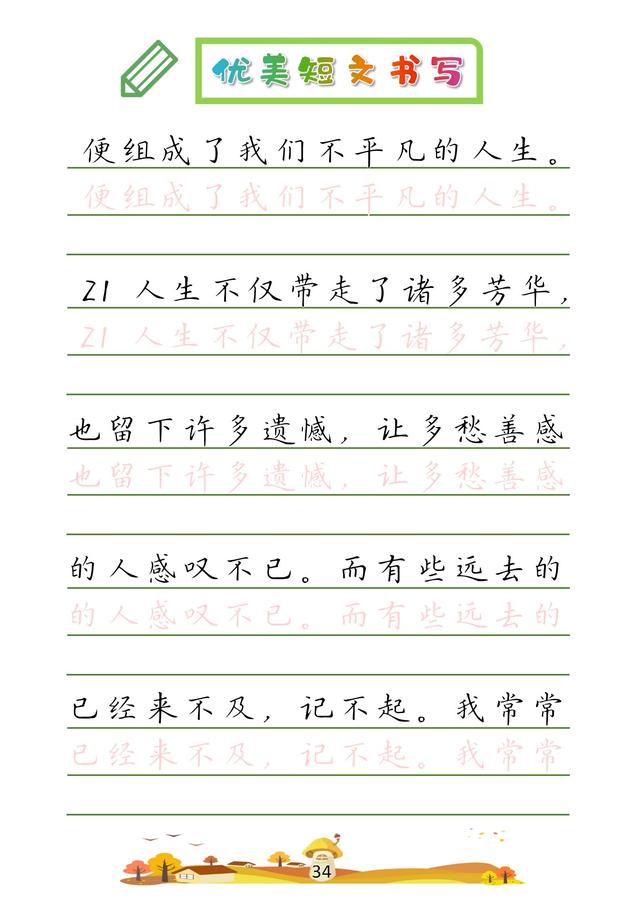 优美短文书写
便组成了我们不平凡的人生。
便组成了我们不平凡的人生。
21 人生不仅带走了诸多芳华，
21 人生不仅带走了诸多芳华，
也留下许多遗憾，让多愁善感
也留下许多遗憾，让多愁善感
的人感叹不已。而有些远去的
的人感叹不已。而有些远去的
已经来不及，记不起。我常常
已经来不及，记不起。我常常
34